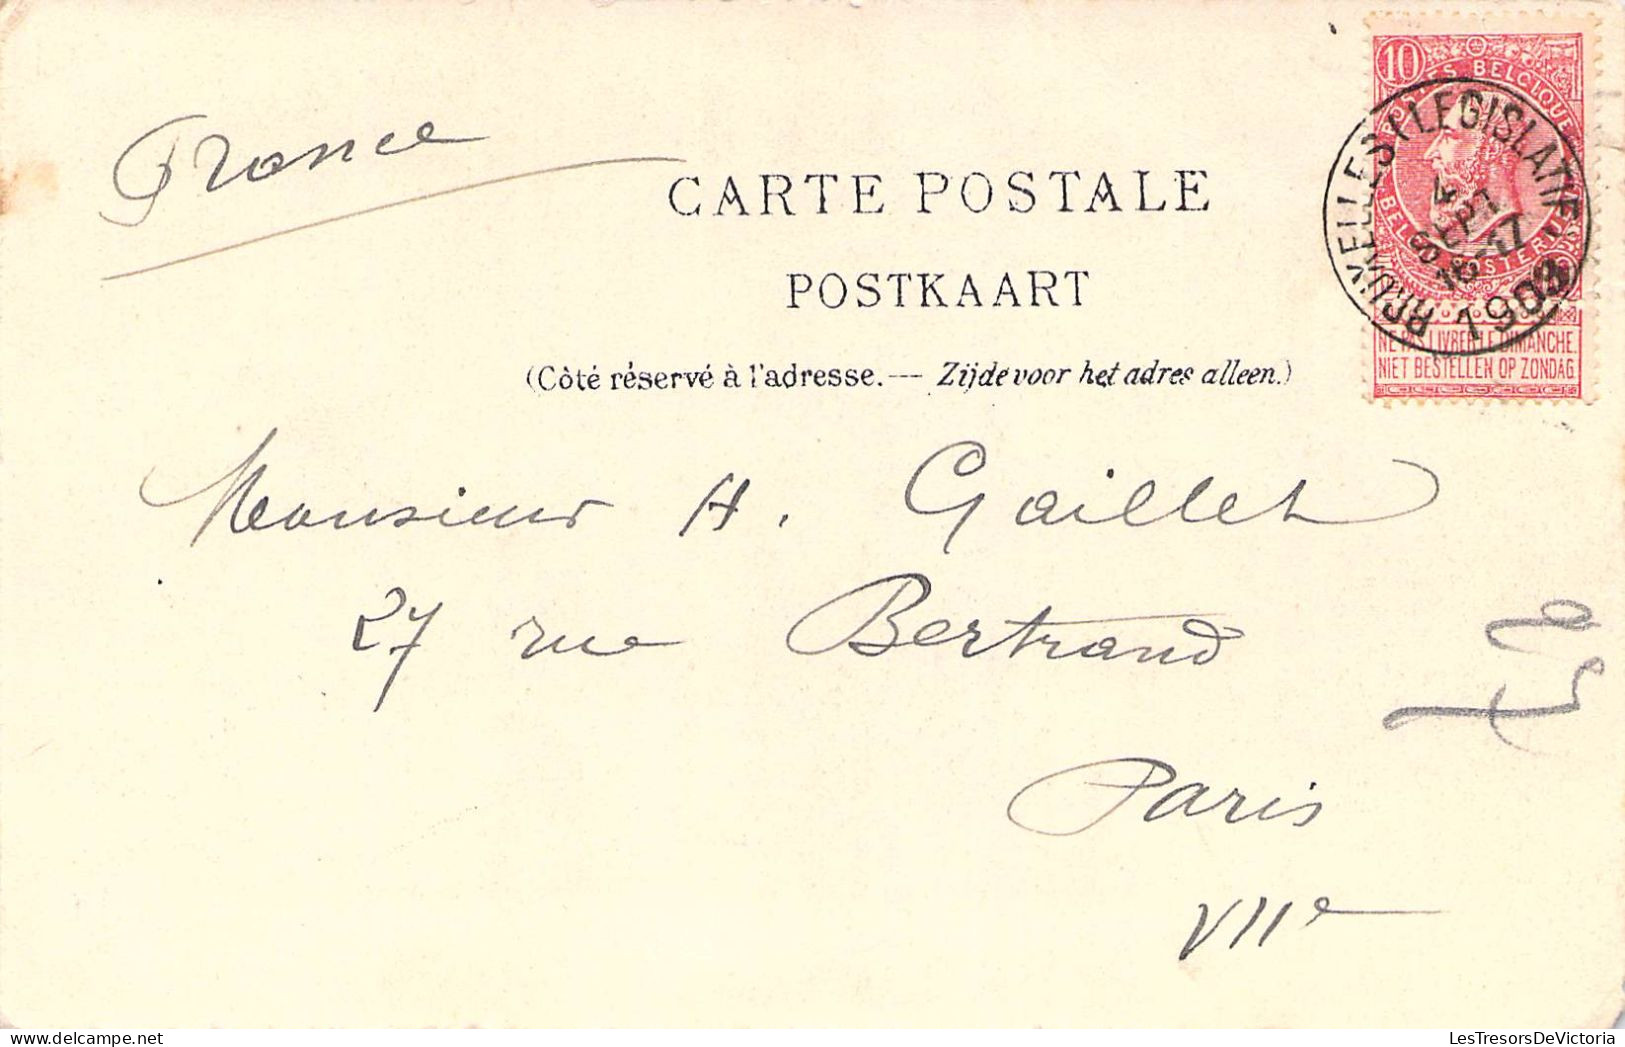 France
CARTE POSTALE
POSTKAART
(Côté réservé à l'adresse. — Zijde voor het adres alleen.)
10
POSTES BELGIQUE
BELGIE POSTERIJEN
NE PAS LIVRER LE DIMANCHE
NIET BESTELLEN OP ZONDAG
BRUXELLES (LEGISLATIF)
4
SEPT
16-17
1903
Monsieur H. Gaillet
27 rue Bertrand
Paris
VIIe
LesTresorsDeVictoria